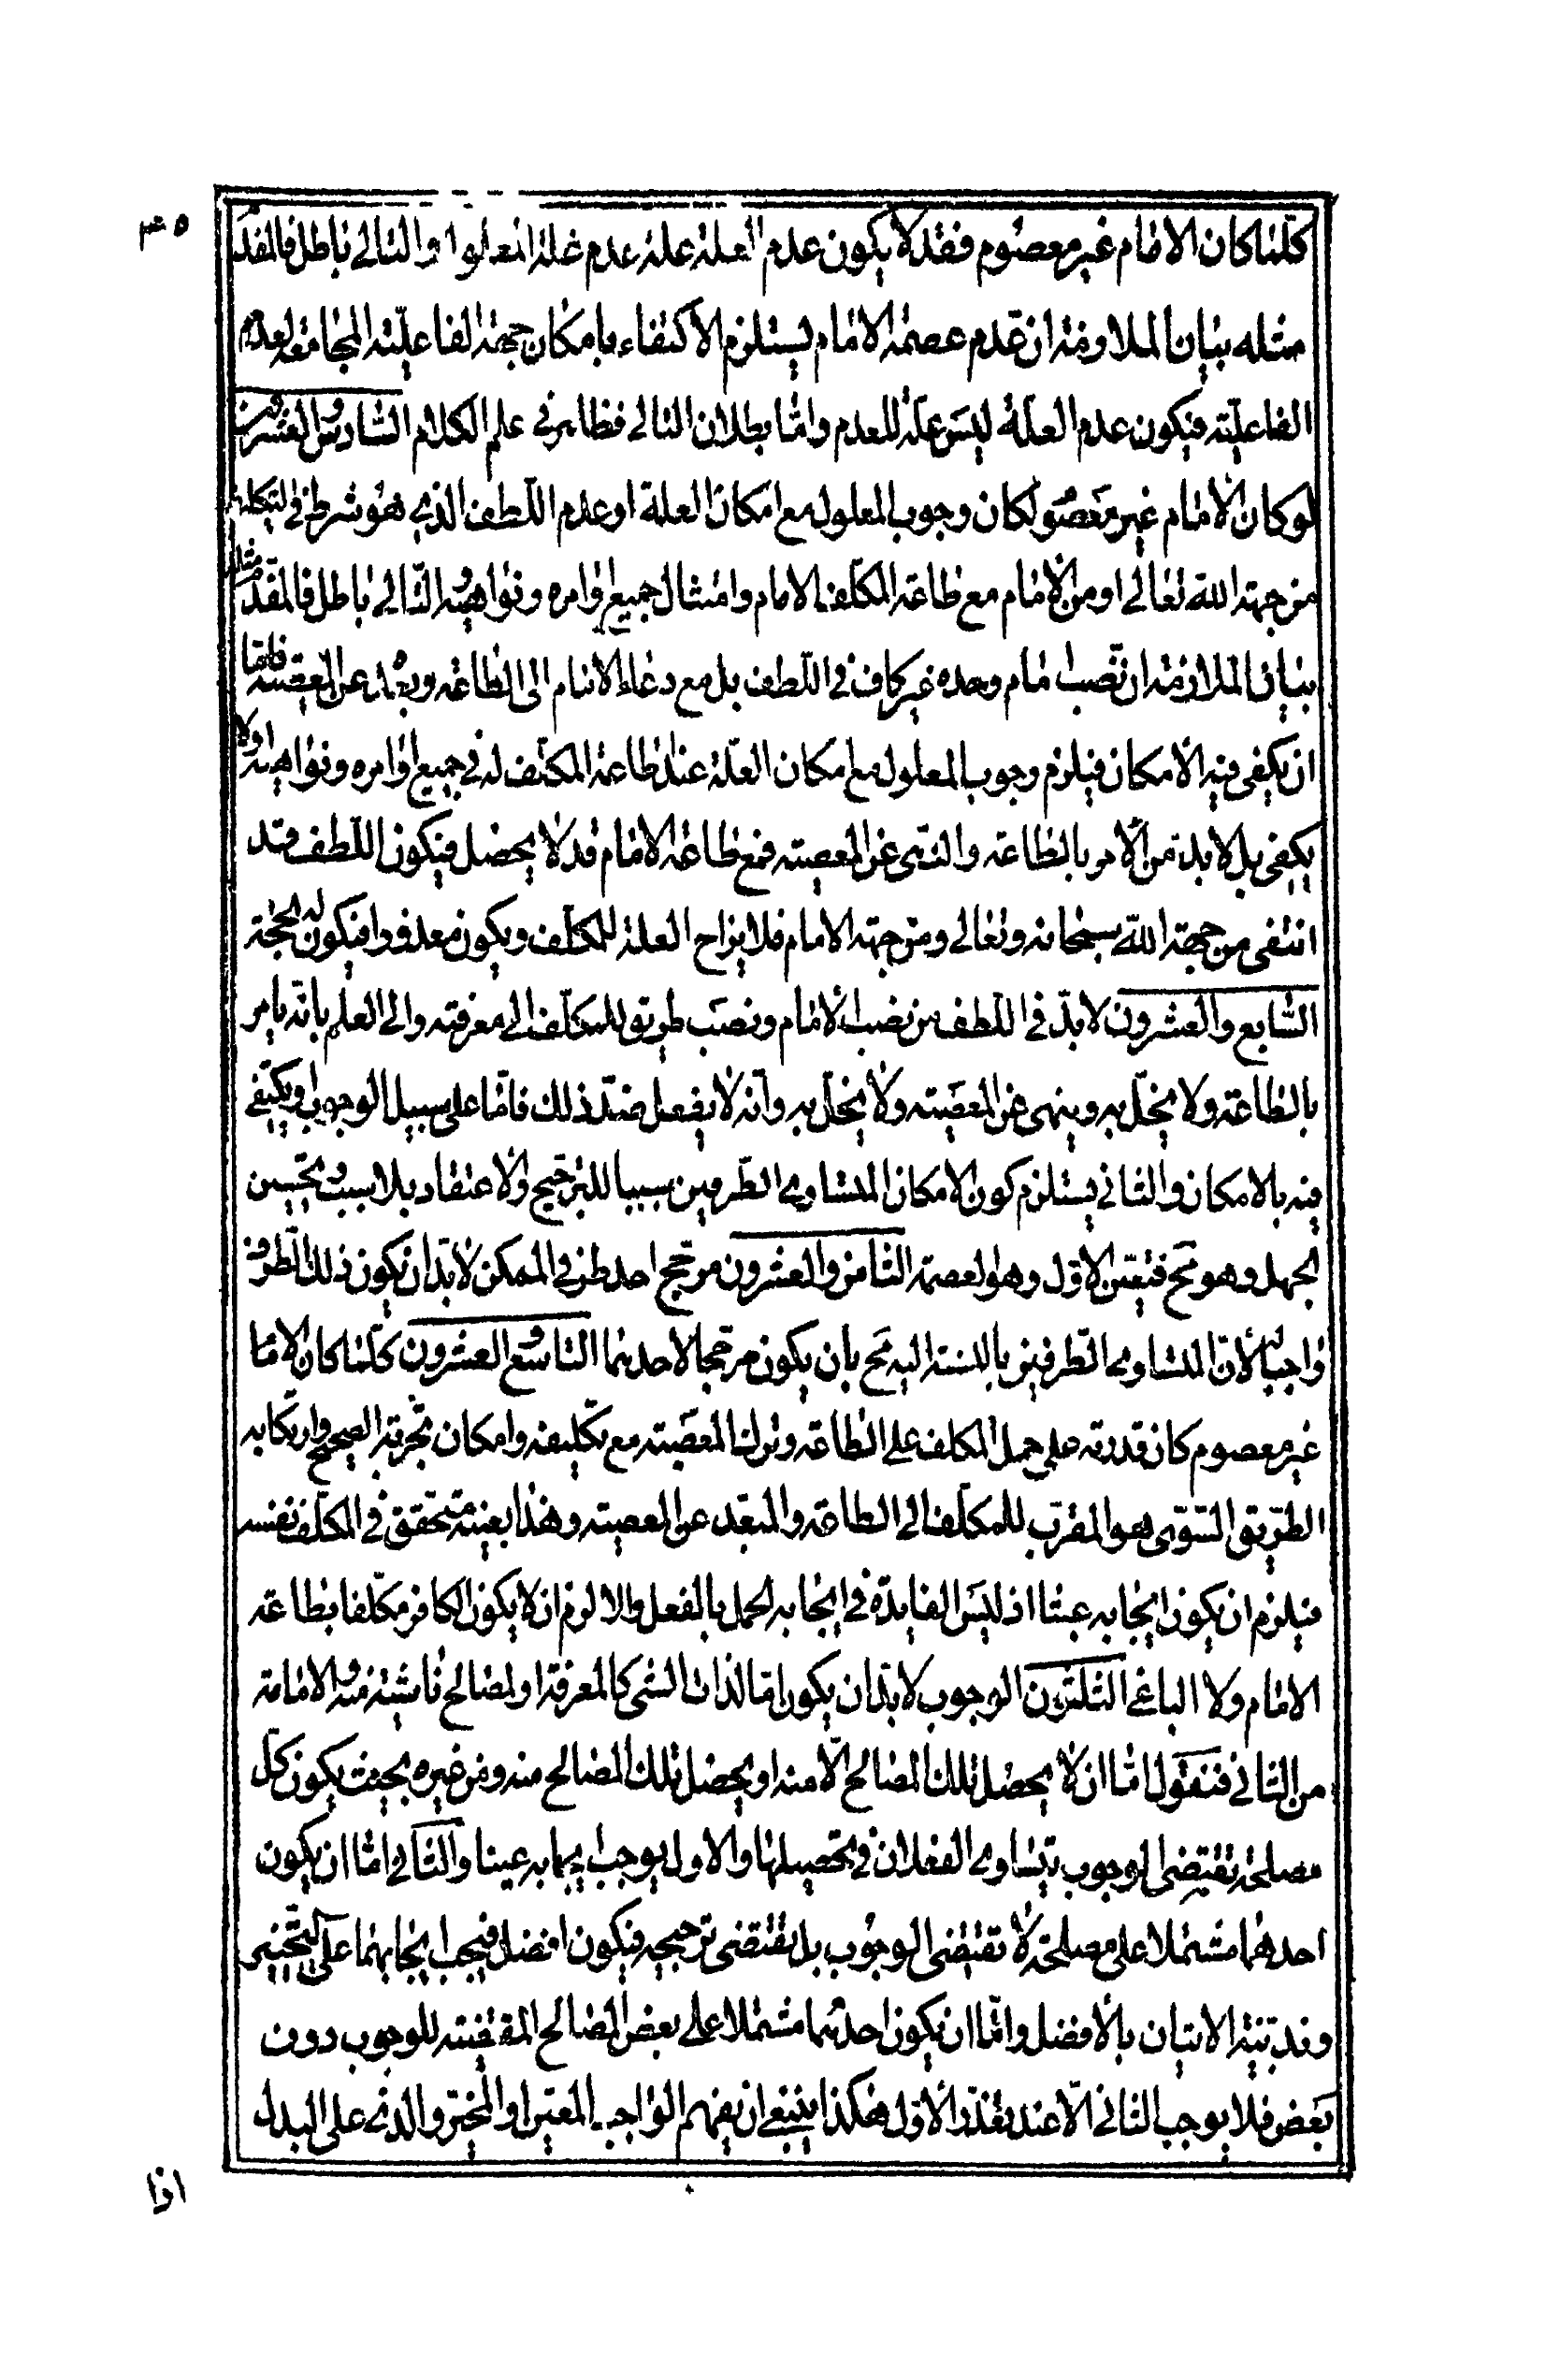 ٣٥
كلّما كان الامام غير معصوم فقد لا يكون عدم العلة علة عدم غلة المعلول والتالى باطل فالمقدّم
مثله بيان الملازمة ان عدم عصمة الامام يستلزم الاكتفاء بامكان جهة الفاعليّة المجامعة لعدم
الفاعليّة فيكون عدم العلّة ليس علّة للعدم وامّا بطلان التالى فظاهر فى علم الكلام السّادس والعشرون
لو كان الامام غير معصوم لكان وجوب المعلول مع امكان العلة او عدم اللّطف الذى هو شرط فى التكليف
من جهة الله تعالى او من الامام مع طاعة المكلّف الامام وامتثال جميع اوامره ونواهيه التّالى باطل فالمقدّم مثله
بيان الملازمة ان نصب امام وحده غير كاف فى اللّطف بل مع دعاء الانام الى الطاعة وبعده عن المعصية فامّا
ان يكفى فيه الامكان فيلزم وجوب المعلول مع امكان العلّة عند طاعة المكلّف له فى جميع اوامره ونواهيه او لا
يكفى بل لا بدّ من الامر بالطاعة والنهى عن المعصية فمع طاعة الامام قد لا يحصل فيكون اللّطف قد
انتفى من جهة الله سبحانه وتعالى ومن جهة الامام فلا يزاح العلة للمكلّف ويكون معذورا فيكون له الحجّة
السّابع والعشرون لا بدّ فى اللّطف من نصب الامام ونصب طريق للمكلّف الى معرفته والى العلم بانّه يامر
بالطاعة ولا يخلّ به وينهى عن المعصية ولا يخلّ به وانّه لا يفعل ضدّ ذلك فامّا على سبيل الوجوب او يكتفى
فيه بالامكان والثانى يستلزم كون الامكان المتساوى الطّرفين سببا للترجيح والاعتقاد بلا سبب وتحسين
الجهل وهو مح فتعيّن الاول وهو العصمة الثامن والعشرون مرجّح احد طرفى الممكن لا بدّ ان يكون ذلك الطرف
واجبا له لانّ المتساوى الطّرفين بالنسبة اليه مح بان يكون مرجّحا لاحدهما التاسع والعشرون كلّما كان الاما
غير معصوم كان قدرته على حمل المكلف على الطاعة وترك المعصية مع تكليفه وامكان تجربة الصحيح وارتكابه
الطّريق السّوى هو المقرّب للمكلّف الى الطاعة والمبعّد عن المعصية وهذا بعينه متحقق فى المكلّف نفسه
فيلزم ان يكون ايجابه عبثا اذ ليس الفايدة فى ايجابه الحمل بالفعل والا لزم ان لا يكون الكافر مكلّفا بطاعة
الامام ولا الباغى الثلثون الوجوب لا بدّ ان يكون امّا لذات الشى كالمعرفة او لمصالح ناشئة منه والامامة
من الثانى فنقول امّا ان لا يحصل تلك المصالح الّا منه او يحصل تلك المصالح منه ومن غيره بحيث يكون كلّ
مصلحة تقتضى الوجوب يتساوى الفعلان فى تحصيلها والاول يوجب ايجابه عينا والثانى امّا ان يكون
احدهما مشتملا على مصلحة لا تقتضى الوجوب بل تقتضى ترجيحه فيكون افضل فيجب ايجابهما على التّخيير
وندبيّة الاتيان بالافضل وامّا ان يكون احدهما مشتملا على بعض المصالح المقتضية للوجوب دون
بعض فلا يوجب الثانى الّا عند تعذّر الاول هكذا ينبغى ان يفهم الواجب المعيّن او المخيّر والذى على البدل
اذا